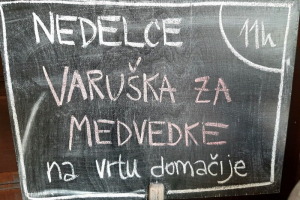 NEDELCE 11h
VARUŠKA ZA
MEDVEDKE
na vrtu domačije